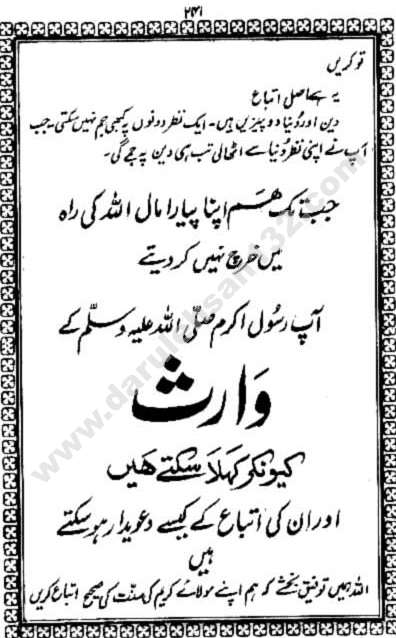 ۲۴۱
تو کریں
یہ ہے اصل اتباع
دین اور دنیا دو چیزیں ہیں۔ ایک نظر دونوں پہ کبھی جم نہیں سکتی۔ جب
آپ نے اپنی نظر دنیا سے اٹھالی تب ہی دین پہ جمے گی۔
جب تک ہم اپنا پیارا مال اللہ کی راہ
میں خرچ نہیں کر دیتے
آپ رسول اکرم صلّی اللہ علیہ وسلّم کے
وارث
کیونکر کہلا سکتے ہیں
اور ان کی اتباع کے کیسے دعویدار ہو سکتے
ہیں
اللہ ہمیں توفیق بخشے کہ ہم اپنے مولائے کریم کی سنّت کی صحیح اتباع کریں